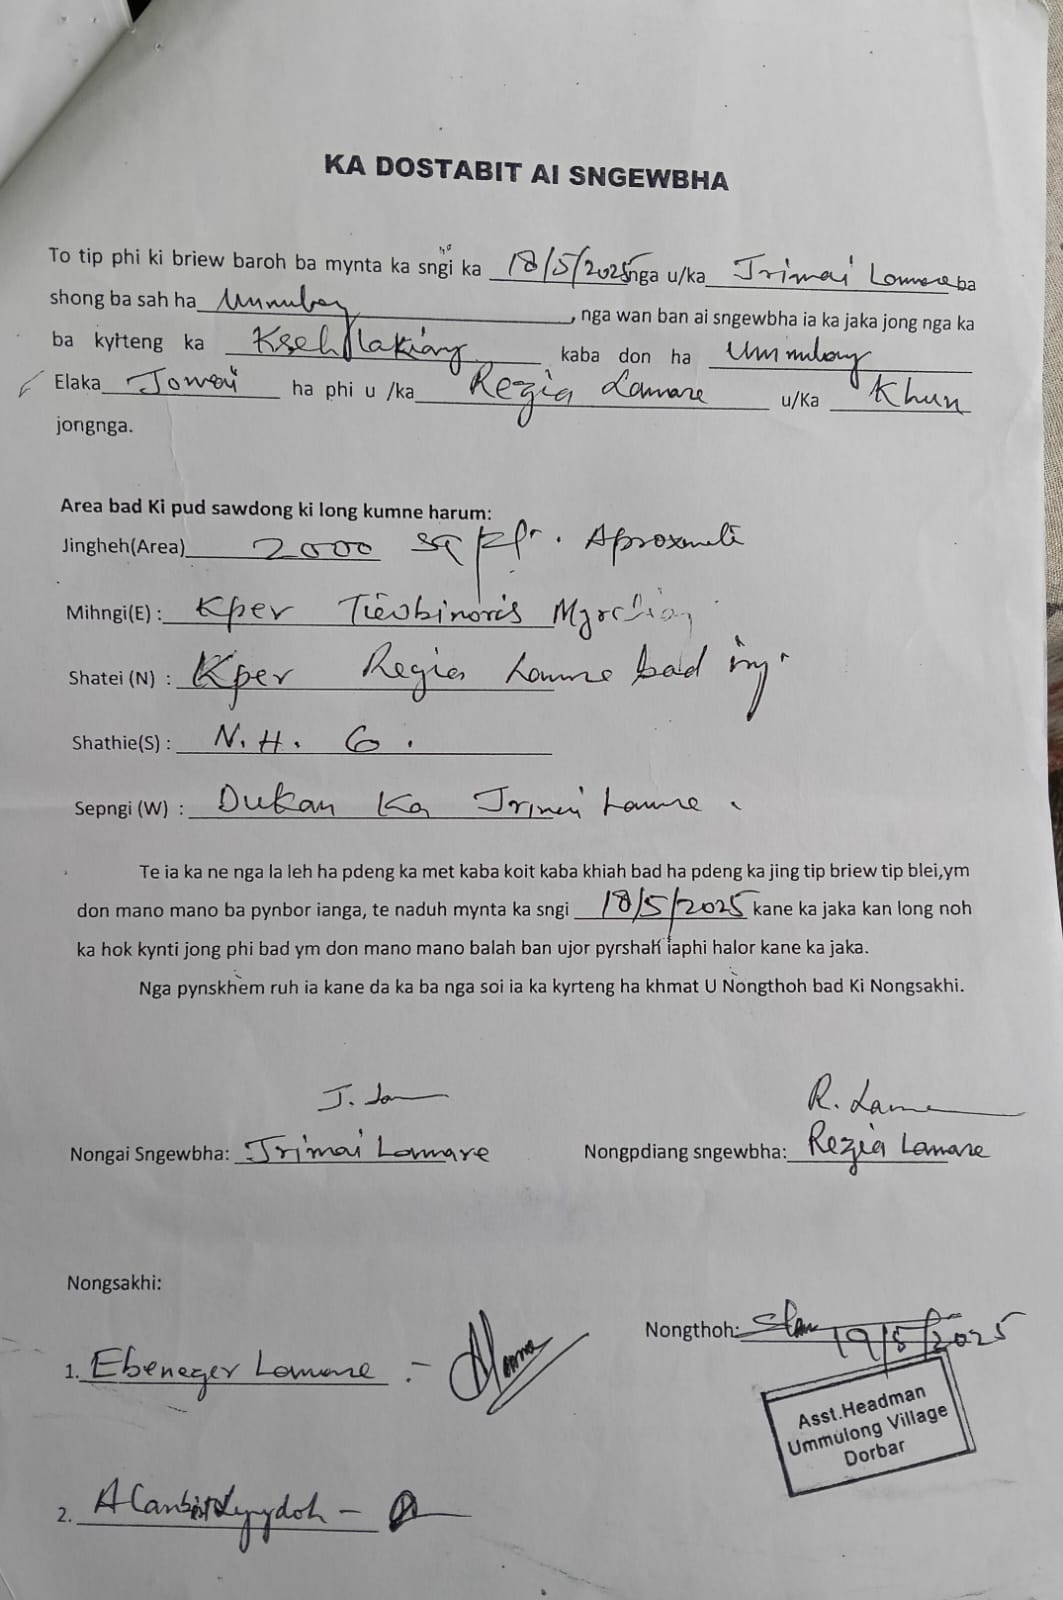 KA DOSTABIT AI SNGEWBHA
To tip phi ki briew baroh ba mynta ka sngi ka 18/5/2025 nga u/ka Jrimai Lamare ba
shong ba sah ha Ummulong, nga wan ban ai sngewbha ia ka jaka jong nga ka
ba kyrteng ka Kseh lakiang kaba don ha Ummulong
Elaka Jowai ha phi u /ka Rezia Lamare u/Ka Khun
jongnga.
Area bad Ki pud sawdong ki long kumne harum:
Jingheh(Area) 2000 sq ft. Aproxmeti
Mihngi(E) : Kper Tiewbinoris
Shatei (N) : Kper Regia Lamre bad ing.
Shathie(S) : N. H. 6.
Sepngi (W) : Dukan Ka Jrimai Lamre.
Te ia ka ne nga la leh ha pdeng ka met kaba koit kaba khiah bad ha pdeng ka jing tip briew tip blei,ym
don mano mano ba pynbor ianga, te naduh mynta ka sngi 18/5/2025 kane ka jaka kan long noh
ka hok kynti jong phi bad ym don mano mano balah ban ujor pyrshah iaphi halor kane ka jaka.
Nga pynskhem ruh ia kane da ka ba nga soi ia ka kyrteng ha khmat U Nongthoh bad Ki Nongsakhi.
R. Lamare
Nongai Sngewbha: Jrimai Lamare Nongpdiang sngewbha: Rezia Lamare
Nongsakhi:
Nongthoh: 19/5/2025
1. Ebenezer Lamare :-
Asst.Headman
Ummulong Village
Dorbar
2. Lyngdoh -